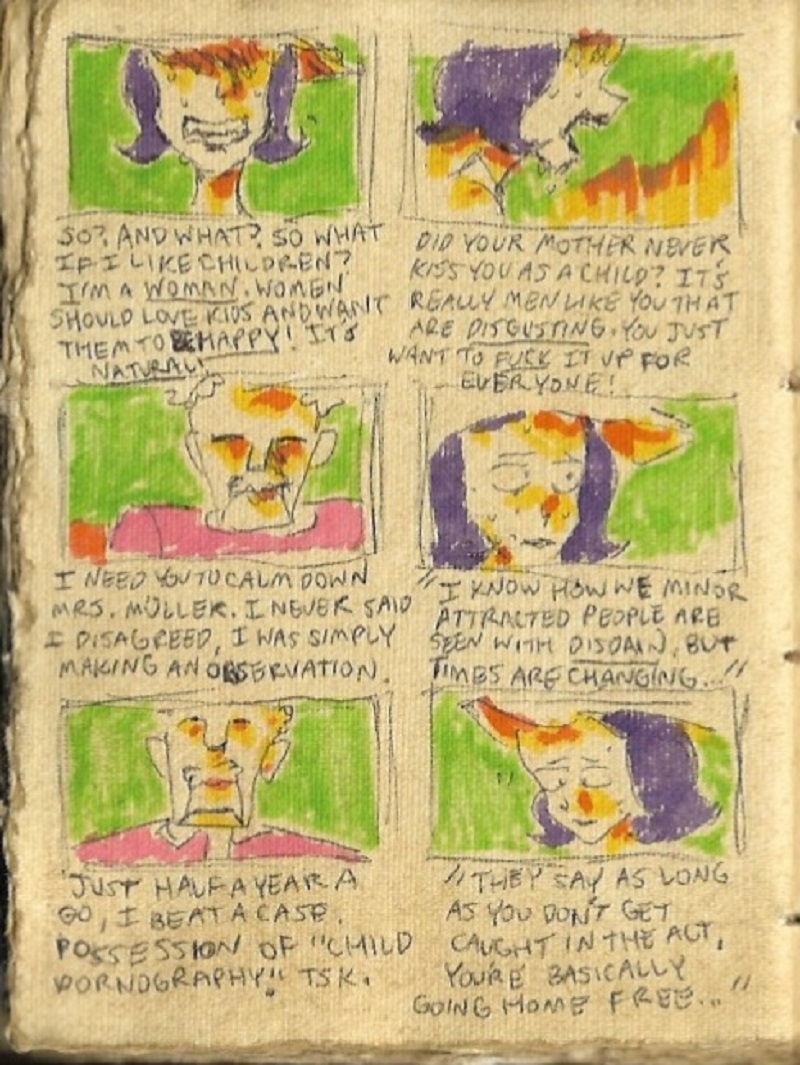 SO? AND WHAT? SO WHAT
IF I LIKE CHILDREN?
I'M A WOMAN. WOMEN
SHOULD LOVE KIDS AND WANT
THEM TO BE HAPPY! IT'S
NATURAL!
DID YOUR MOTHER NEVER
KISS YOU AS A CHILD? IT'S
REALLY MEN LIKE YOU THAT
ARE DISGUSTING. YOU JUST
WANT TO FUCK IT UP FOR
EVERYONE!
I NEED YOU TO CALM DOWN
MRS. MÜLLER. I NEVER SAID
I DISAGREED, I WAS SIMPLY
MAKING AN OBSERVATION.
"I KNOW HOW WE MINOR
ATTRACTED PEOPLE ARE
SEEN WITH DISDAIN, BUT
TIMES ARE CHANGING..."
JUST HALF A YEAR A
GO, I BEAT A CASE.
POSSESSION OF "CHILD
PORNOGRAPHY." TSK.
"THEY SAY AS LONG
AS YOU DON'T GET
CAUGHT IN THE ACT,
YOU'RE BASICALLY
GOING HOME FREE..."